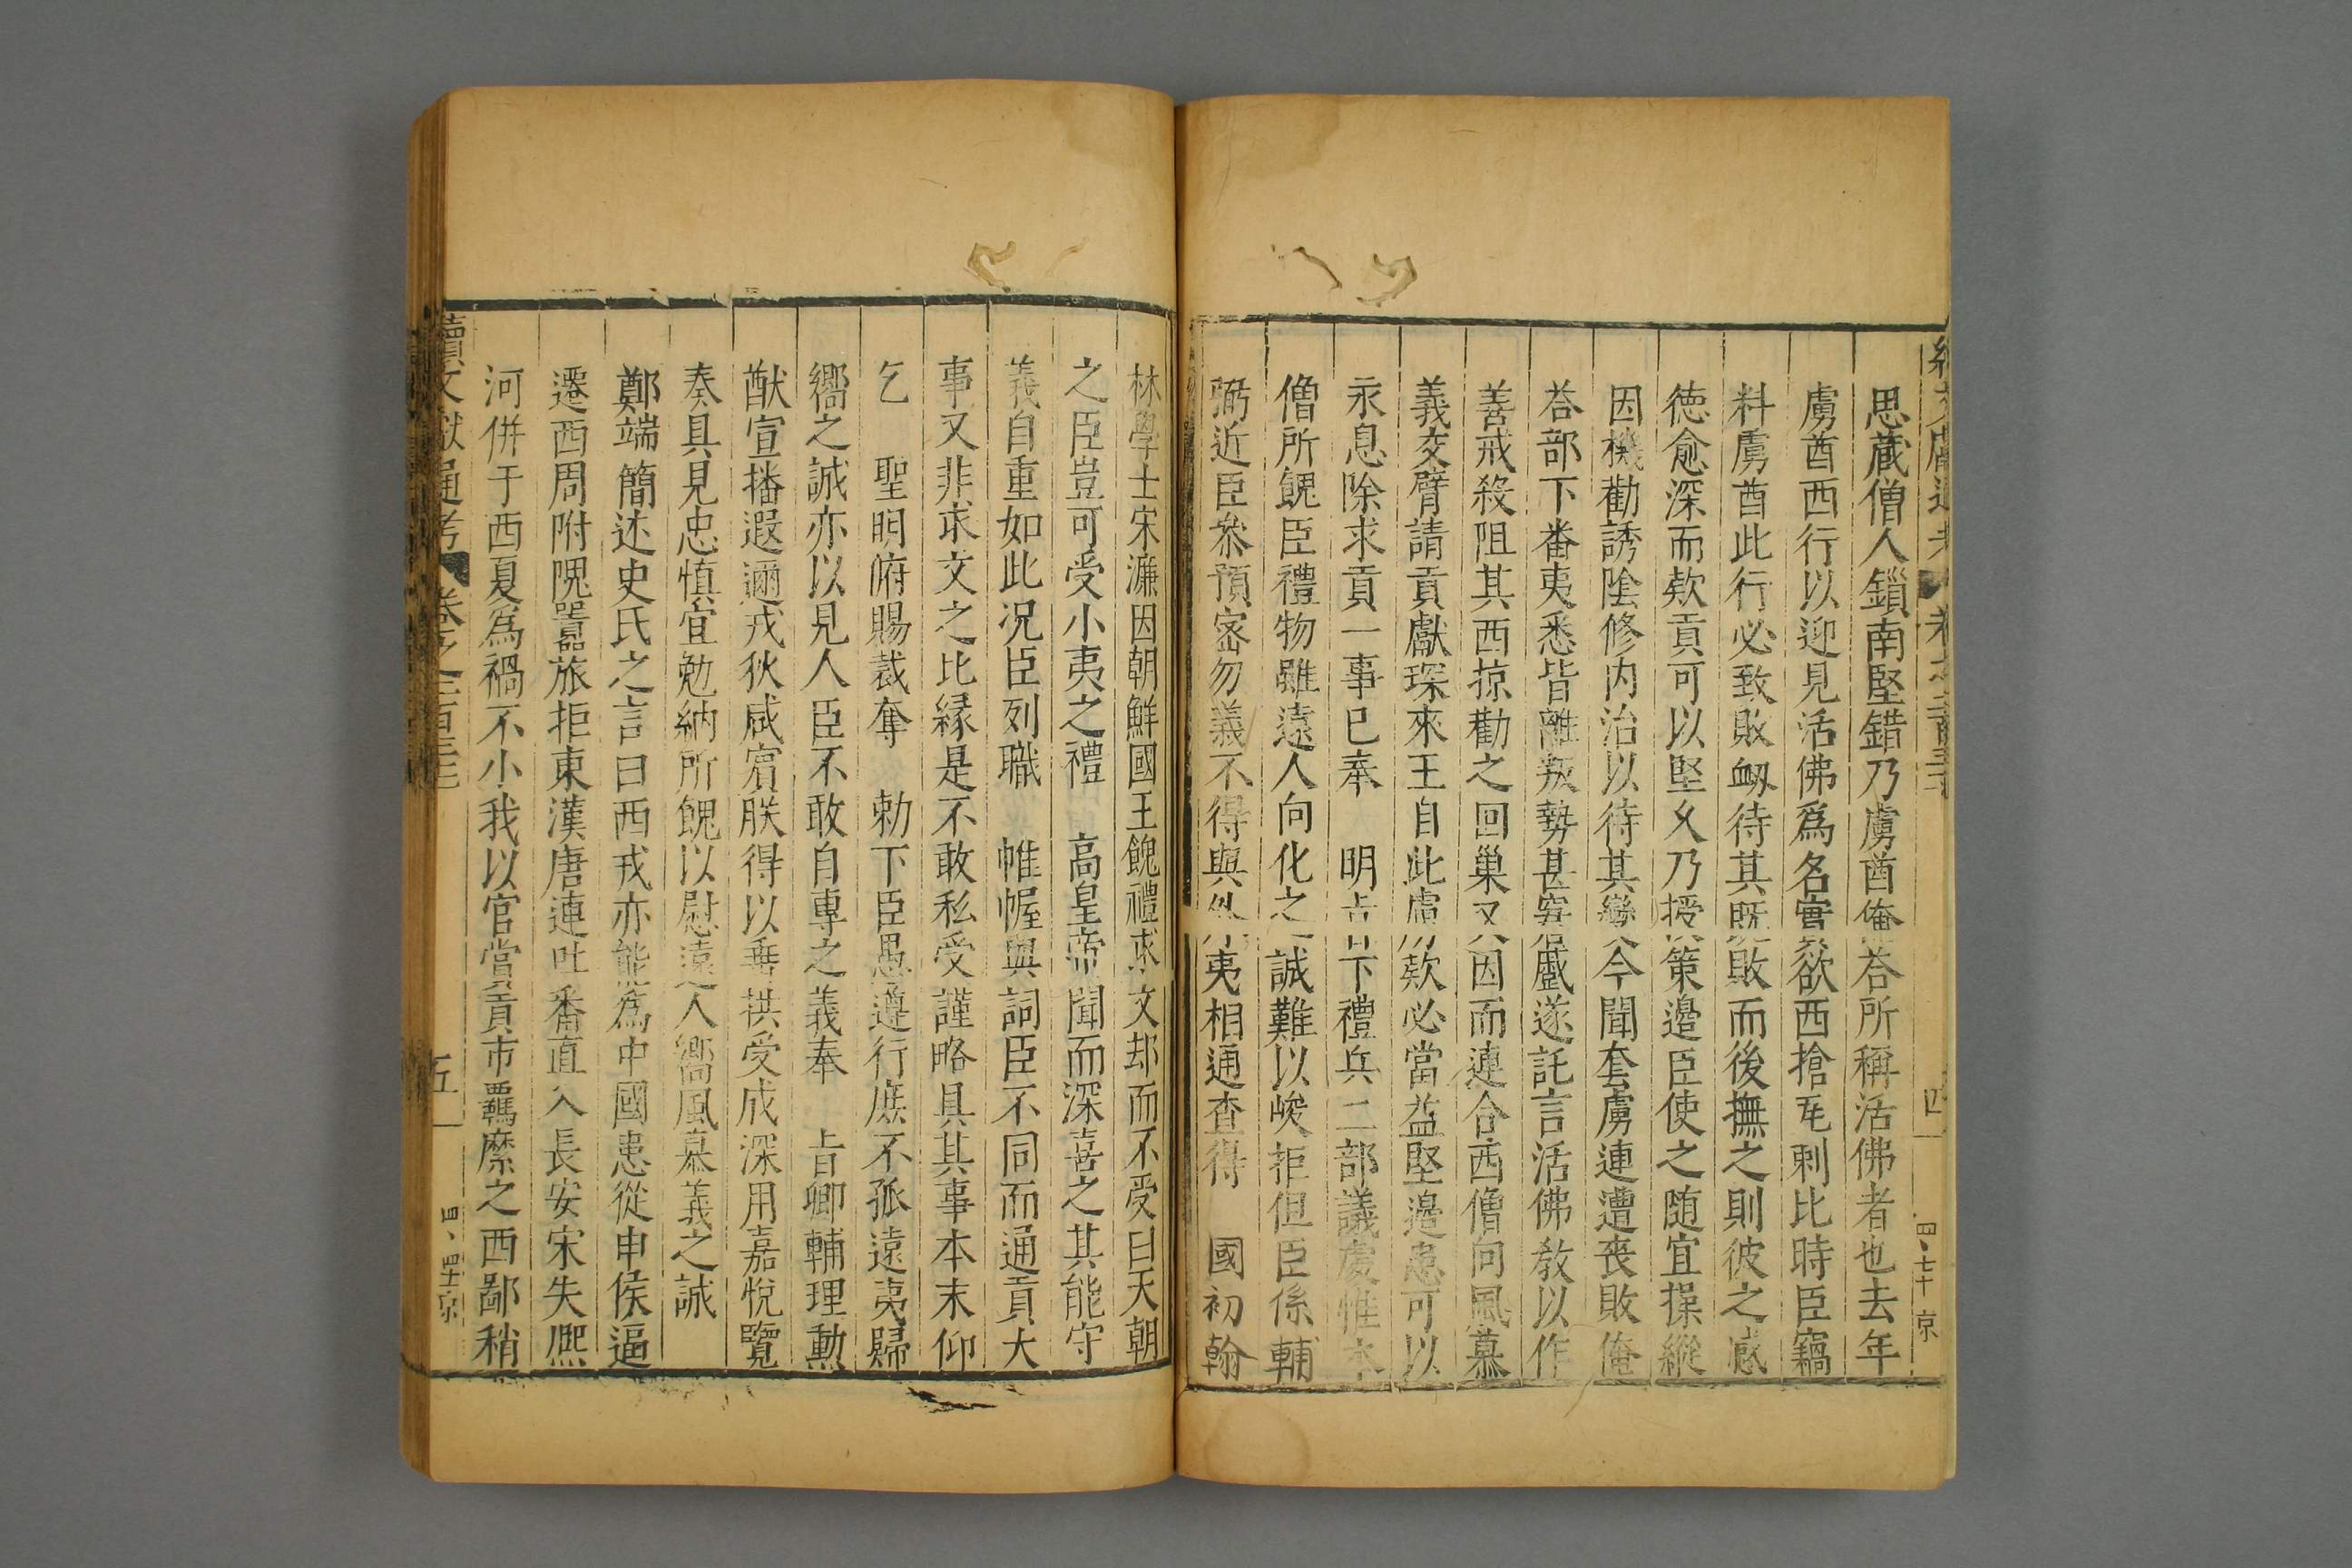 思藏僧人鎖南堅錯乃虜酋俺荅所稱活佛者也去年
虜酋西行以迎見活佛爲名實欲西搶瓦剌比時臣竊
料虜酋此行必致敗衂待其旣敗而後撫之則彼之感
徳愈深而欵貢可以堅乆乃授策邉臣使之随宜操縱
因機勸誘隂修内治以待其變今聞套虜連遭喪敗俺
荅部下番夷悉皆離叛勢甚窘蹙遂託言活佛敎以作
善戒殺阻其西掠勸之回巢又因而連合西僧向風慕
義交臂請貢獻琛來王自此虜欵必當益堅邉患可以
永息除求貢一事已奉　明旨下禮兵二部議處惟本
僧所餽臣禮物雖遠人向化之誠難以峻拒但臣係輔
弼近臣叅預宻勿義不得與外夷相通查得　國初翰
林學士宋濂因朝鮮國王餽禮求文却而不受曰天朝
之臣豈可受小夷之禮　高皇帝聞而深喜之其能守
義自重如此况臣列職　帷幄與詞臣不同而通貢大
事又非求文之比縁是不敢私受謹略具其事本末仰
乞　聖明俯賜裁奪　勅下臣愚遵行庶不孤遠夷歸
嚮之誠亦以見人臣不敢自專之義奉　旨卿輔理勲
猷宣播遐邇戎狄咸賔朕得以垂拱受成深用嘉悅覽
奏具見忠慎宜勉納所餽以慰遠人嚮風慕義之誠
鄭端簡述史氏之言曰西戎亦能爲中國患從申侯逼
遷西周附隗囂旅拒東漢唐連吐番直入長安宋失熈
河併于西夏爲禍不小我以官賞貢市羈縻之西鄙稍
續文獻通考　卷之二百三三
五
四
京